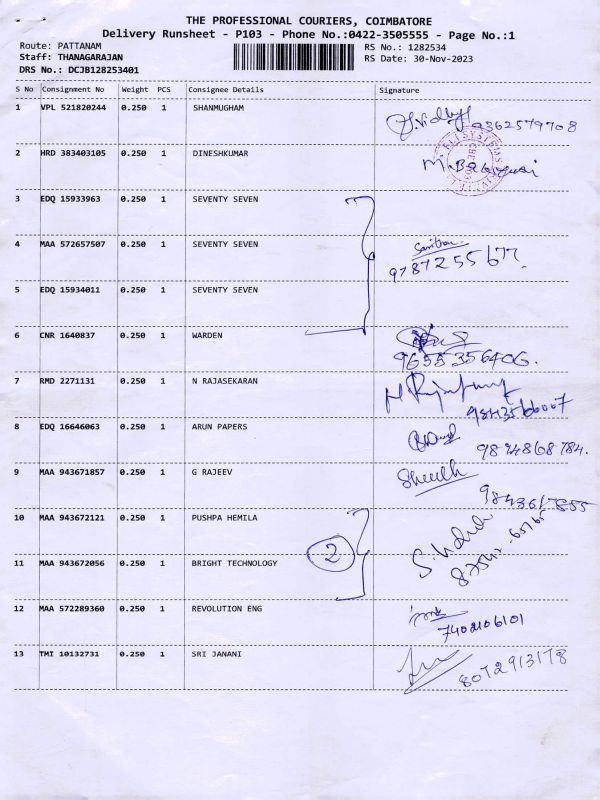 THE PROFESSIONAL COURIERS, COIMBATORE
Delivery Runsheet - P103 - Phone No.:0422-3505555 - Page No.:1
Route: PATTANAM RS No.: 1282534
Staff: THANAGARAJAN RS Date: 30-Nov-2023
DRS No.: DCJB128253401
S No Consignment No Weight PCS Consignee Details Signature
1 VPL 521820244 0.250 1 SHANMUGHAM 9362579708
2 HRD 383403105 0.250 1 DINESHKUMAR
3 EDQ 15933963 0.250 1 SEVENTY SEVEN
4 MAA 572657507 0.250 1 SEVENTY SEVEN
9787255677
5 EDQ 15934011 0.250 1 SEVENTY SEVEN
6 CNR 1640837 0.250 1 WARDEN
9655356406.
7 RMD 2271131 0.250 1 N RAJASEKARAN
9843566007
8 EDQ 16646063 0.250 1 ARUN PAPERS
9894868784.
9 MAA 943671857 0.250 1 G RAJEEV
9848617855
10 MAA 943672121 0.250 1 PUSHPA HEMILA
2
11 MAA 943672056 0.250 1 BRIGHT TECHNOLOGY
12 MAA 572289360 0.250 1 REVOLUTION ENG
7402106101
13 TMI 10132731 0.250 1 SRI JANANI 8072913178